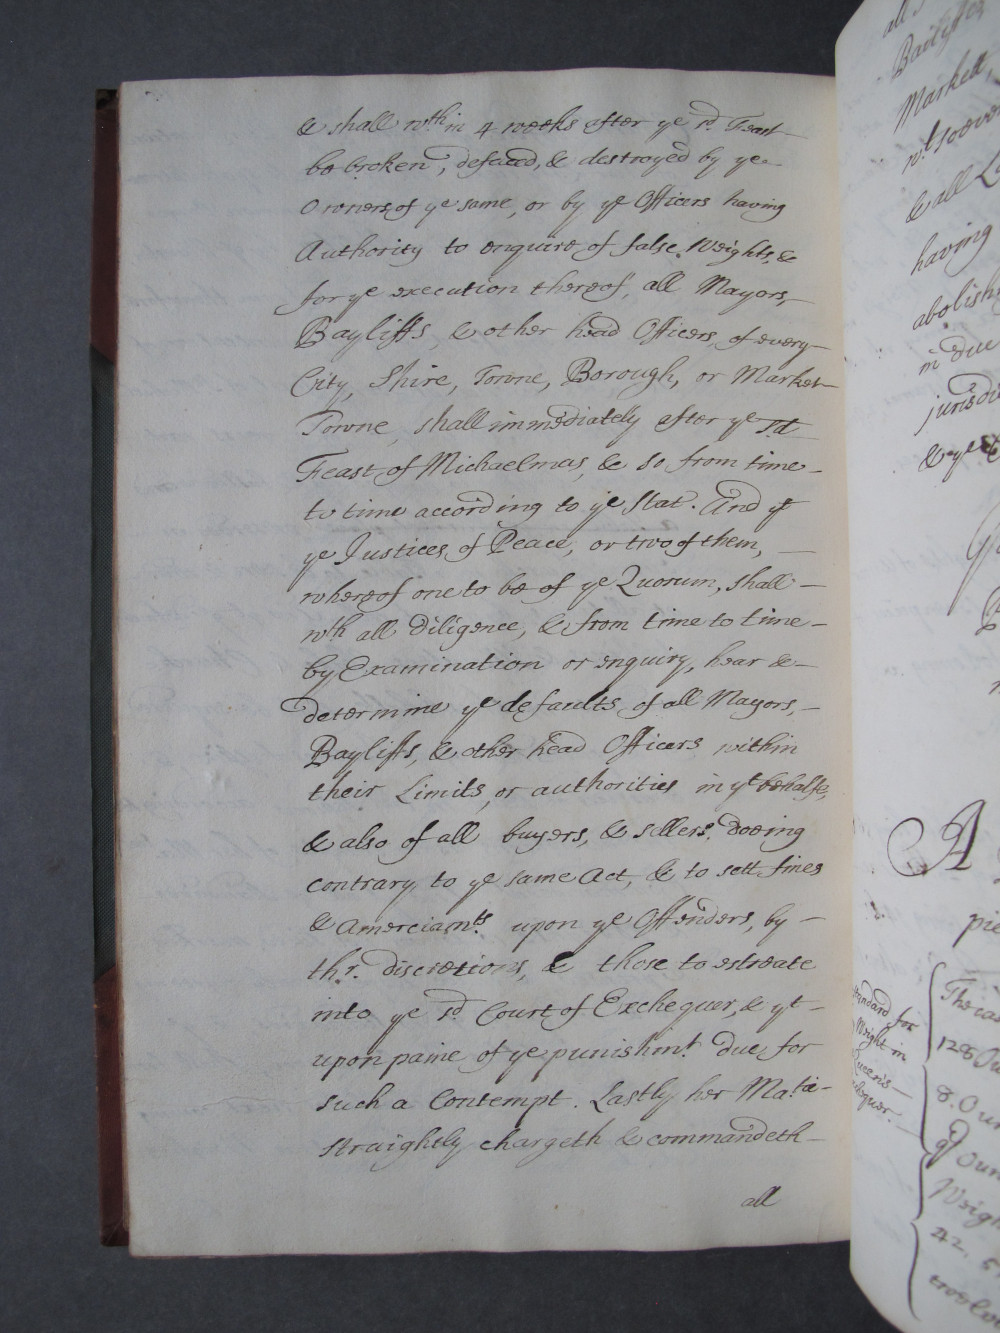 & shall wth in 4 weeks after ye sd. Feast
be broken, defaced, & destroyed by ye
Owners, of ye same, or by ye Officers having
Authority to enquire, of false Weights, &
for ye execution thereof, all Mayors,
Bayliffs & other head Officers, of every
City, Shire, Towne, Borough, or Market
Towne, shall immediately after ye sd.
Feast, of Michaelmas, & so from time
to time according to ye Stat. And yt
ye Justices, of Peace, or two of them,
whereof one to be of ye Quorum, shall
wth all diligence, & from time to time
by Examination or enquiry, hear &
determine ye defaults, of all Mayors,
Bayliffs, & other head Officers within
their Limits, or authorities in yt behalfe,
& also of all buyers, & sellers, doeing
contrary, to ye same Act, & to sett fines
& Amerciamts. upon ye Offenders, by
thr. discretions, & those to estreate
into ye sd Court of Exchequer, & yt
upon paine of ye punishmt. due for
such a Contempt. Lastly her Matie
straightly chargeth & commandeth
all
Bailiffs,
Market
& all
having
abolish
in due
& ye
A
Standard for
Weight in
128
8. Oun
Weigh
42, 5